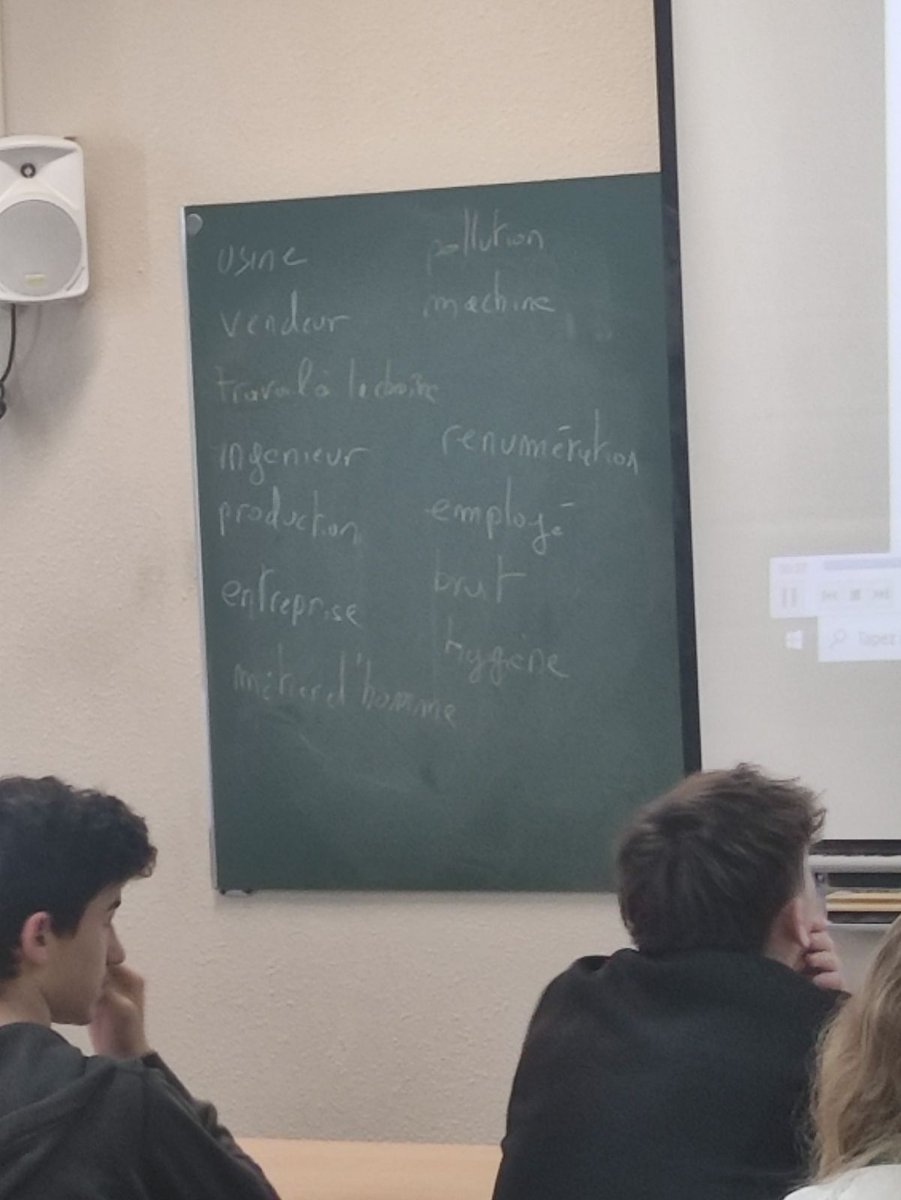 usine
vendeur
travail à la chaîne
ingenieur
production
entreprise
métier d'homme
pollution
machine
renumération
employé
brut
hygiène
Tapez